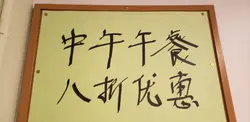 中午午餐
八折优惠